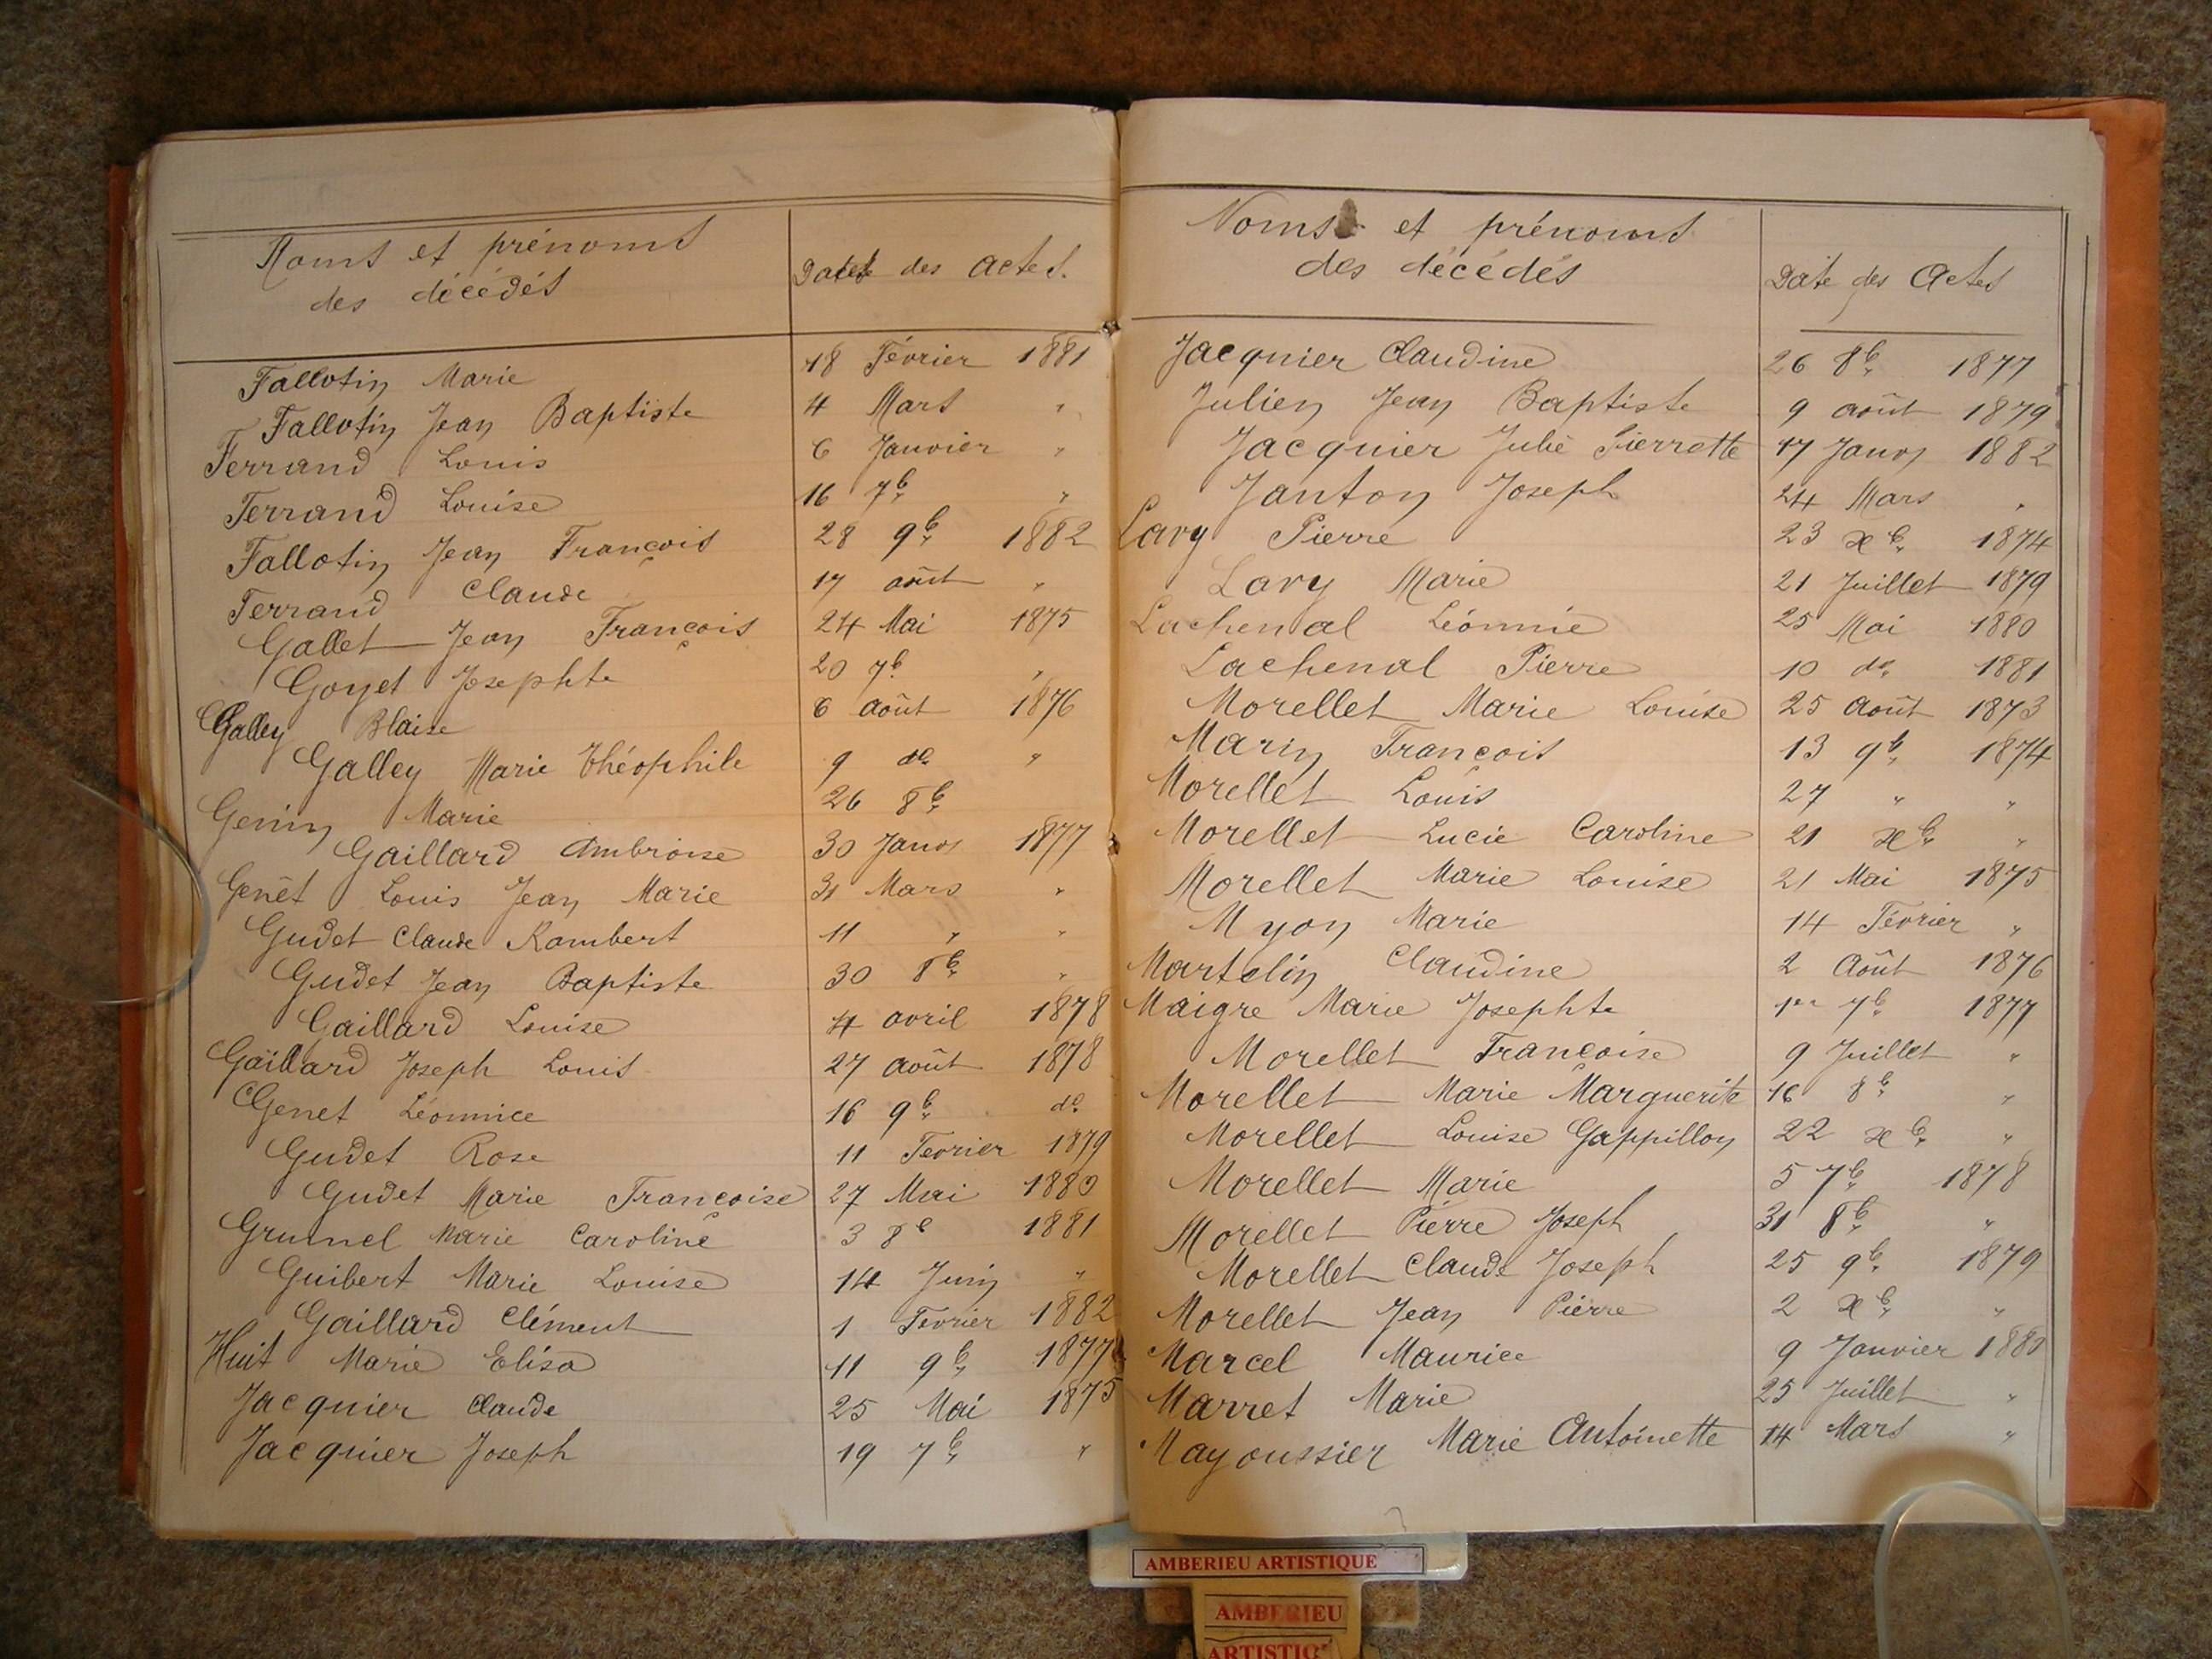 Noms et prénoms
des décédés
Dates des actes.
Fallotin Marie 18 Février 1881
Fallotin Jean Baptiste 4 Mars "
Ferrand Louis 6 Janvier "
Ferrand Louise 16 7b "
Fallotin Jean François 28 9b 1882
Ferrand Claude 17 août "
Gallet Jean François 24 Mai 1875
Goyet Josephte 20 7b "
Galley Blaise 6 août 1876
Galley Marie Théophile 9 do "
Genin Marie 26 8b
Gaillard Ambroise 30 Janv 1877
Genêt Louis Jean Marie 31 Mars "
Gudet Claude Rambert 11 " "
Gudet Jean Baptiste 30 8b "
Gaillard Louise 4 avril 1878
Gaillard Joseph Louis 27 août 1878
Genet Léonnice 16 9b do
Gudet Rose 11 Fevrier 1879
Gudet Marie Françoise 27 Mai 1880
Grumel Marie Caroline 3 8b 1881
Guibert Marie Louise 14 Juin "
Gaillard Clément 1 Fevrier 1882
Huit Marie Elisa 11 9b 1877
Jacquier Claude 25 Mai 1875
Jacquier Joseph 19 7b "
Noms et prénoms
des décédés
Date des Actes
Jacquier Claudine 26 8b 1877
Julien Jean Baptiste 9 août 1879
Jacquier Julie Pierrette 17 Janv 1882
Janton Joseph 24 Mars "
Lavy Pierre 23 xb 1874
Lavy Marie 21 Juillet 1879
Lachenal Léonnie 25 Mai 1880
Lachenal Pierre 10 do 1881
Morellet Marie Louise 25 août 1873
Marin François 13 9b 1874
Morellet Louis 27 " "
Morellet Lucie Caroline 21 xb "
Morellet Marie Louise 21 Mai 1875
Myon Marie 14 Février "
Martelin Claudine 2 Août 1876
Maigre Marie Josephte 1er 7b 1877
Morellet Françoise 9 Juillet "
Morellet Marie Marguerite 16 8b "
Morellet Louise Gappillon 22 xb "
Morellet Marie 5 7b 1878
Morellet Pierre Joseph 31 8b "
Morellet Claude Joseph 25 9b 1879
Morellet Jean Pierre 2 xb "
Marcel Maurice 9 Janvier 1880
Marret Marie 25 Juillet "
Mayoussier Marie Antoinette 14 Mars "
AMBERIEU ARTISTIQUE
AMBERIEU